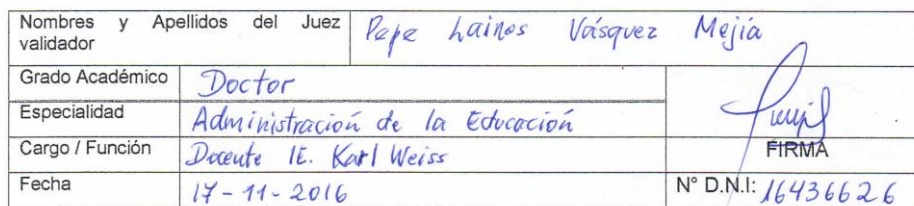 Nombres y Apellidos del Juez validador Pepe Laines Vásquez Mejía
Grado Académico Doctor
Especialidad Administración de la Educación
Cargo / Función Docente IE. Karl Weiss
FIRMA
Fecha 17-11-2016 N° D.N.I: 16436626